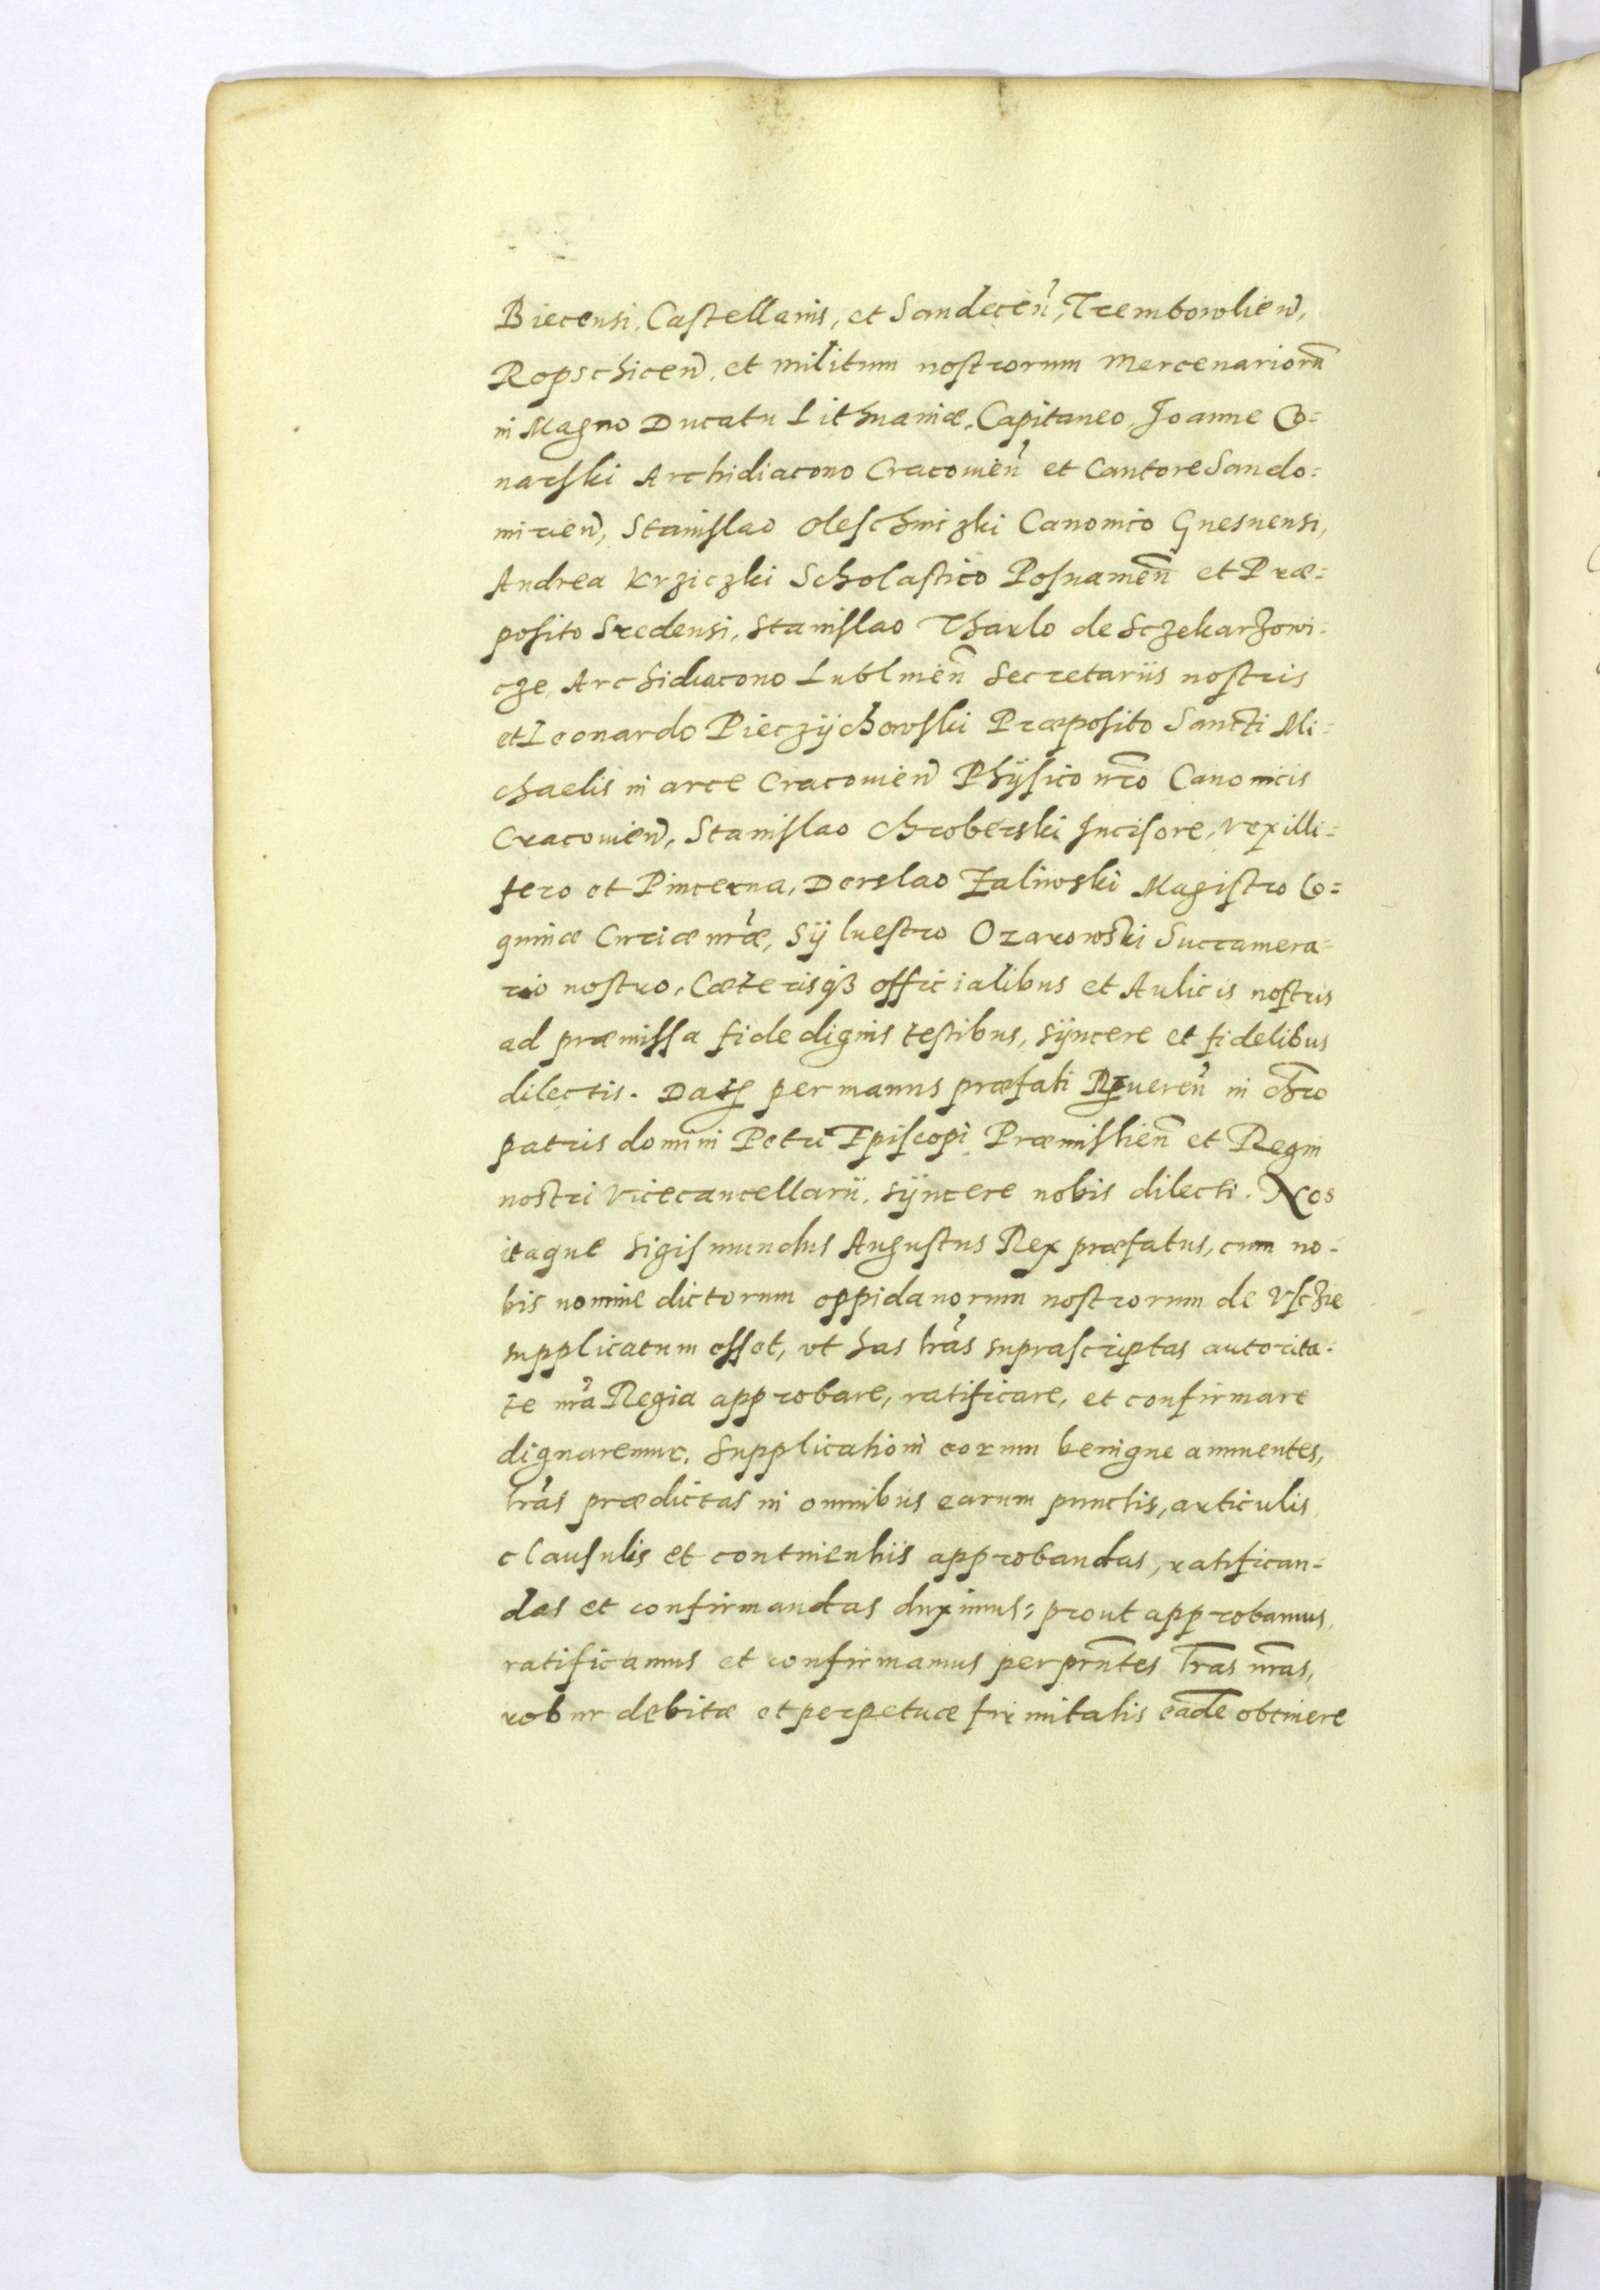 Biecensi, Castellanis, et Sandecen̄, Trembowlien̄,
Ropschicen̄, et militum nostrorum Mercenariorū
in Magno Ducatu Lithuaniæ, Capitaneo, Joanne Co=
narski Archidiacono Cracouien̄ et Cantore Sando=
mirien̄, Stanislao Oleschniczki Canonico Gnesnensi,
Andrea Krziczki Scholastico Posnanien̄ et Præ=
posito Sredensi, Stanislao Tharlo de Sczekarzowi=
cze, Archidiacono Lublinen̄ Secretariis nostris
et Leonardo Pieczÿchowski Præposito Sancti Mi=
chaelis in arce Cracouien̄ Phÿsico nr̄o Canonicis
Cracouien̄, Stanislao Chroberski Incisore, Vexilli=
fero et Pincerna, Derslao Zaliwski Magistro Co=
quinæ Curiæ nr̄æ, Sÿluestro Ozarowski Succamera=
rio nostro, Cæterisqꝫ officialibus et Aulicis nostris
ad præmissa fide dignis testibus, sÿncere et fidelibus
dilectis. Datꝭ per manus præfati Reueren̄ in chr̄o
patris domini Petri Episcopi Præmislien̄ et Regni
nostri Vicecancellarii, sÿncere nobis dilecti. Nos
itaque Sigismundus Augustus Rex præfatus, cum no=
bis nomine dictorum oppidanorum nostrorum de Vschzie
supplicatum esset, vt has lr̄as suprascriptas autorita=
te nr̄a Regia approbare, ratificare, et confirmare
dignaremur, Supplicationi eorum benigne annuentes,
lr̄as prædictas in omnibus earum punctis, articulis,
clausulis et continentiis approbandas, ratifican=
das et confirmandas duximus; prout approbamus,
ratificamus et confirmamus per prn̄tes lr̄as nr̄as,
robur debitæ et perpetuæ firmitatis eādē obtinere